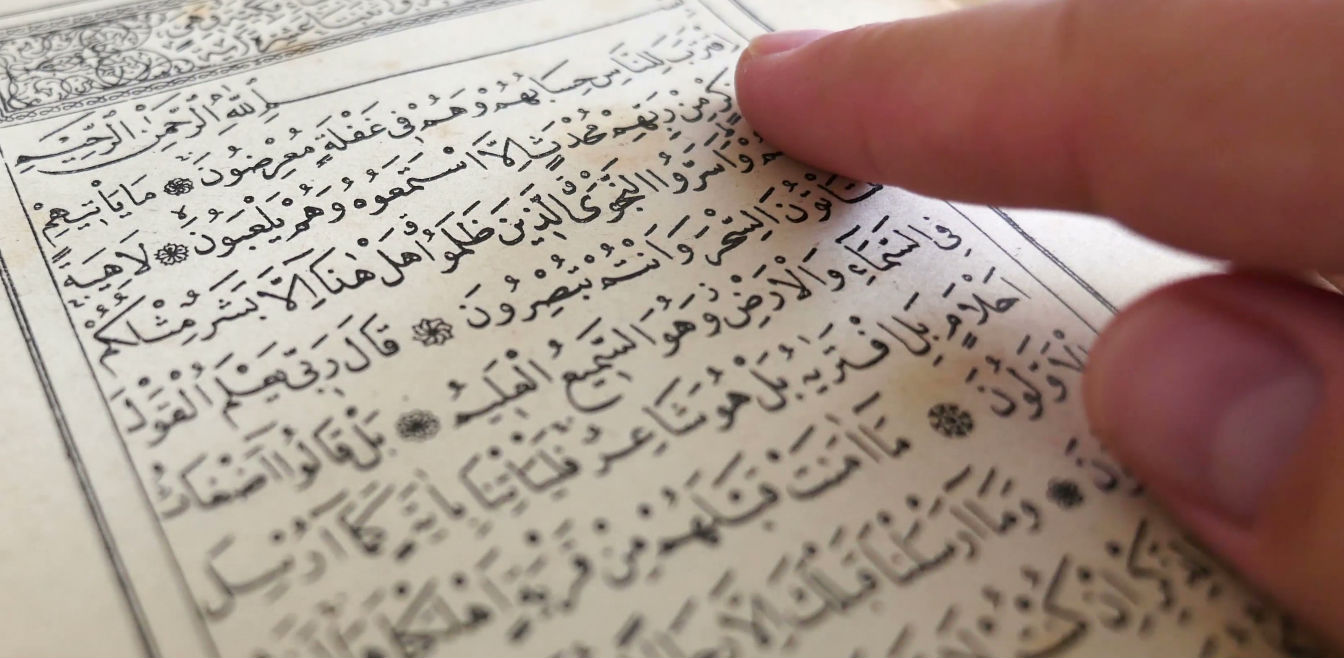 بِسْمِ اللّٰهِ الرَّحْمٰنِ الرَّحِيمِ
اِقْتَرَبَ لِلنَّاسِ حِسَابُهُمْ وَهُمْ فِى غَفْلَةٍ مُعْرِضُونَ ۞ مَا يَأْتِيهِمْ
ذِكْرٍ مِنْ رَبِّهِمْ مُحْدَثٍ اِلَّا اسْتَمَعُوهُ وَهُمْ يَلْعَبُونَ ۞ لَاهِيَةً
وَاَسَرُّوا النَّجْوَى الَّذِينَ ظَلَمُوا هَلْ هٰذَا اِلَّا بَشَرٌ مِثْلُكُمْ
اَفَتَأْتُونَ السِّحْرَ وَاَنْتُمْ تُبْصِرُونَ ۞ قَالَ رَبِّى يَعْلَمُ الْقَوْلَ
فِى السَّمَاءِ وَالْاَرْضِ وَهُوَ السَّمِيعُ الْعَلِيمُ ۞ بَلْ قَالُوا اَضْغَاثُ
اَحْلَامٍ بَلِ افْتَرٰيهُ بَلْ هُوَ شَاعِرٌ فَلْيَأْتِنَا بِاٰيَةٍ كَمَا اُرْسِلَ
الْاَوَّلُونَ ۞ مَا اٰمَنَتْ قَبْلَهُمْ مِنْ قَرْيَةٍ اَهْلَكْنَاهَا
ونَ ۞ وَمَا اَرْسَلْنَا قَبْلَكَ اِلَّا رِجَالًا
الذِّكْرِ اِنْ كُنْتُمْ لَا